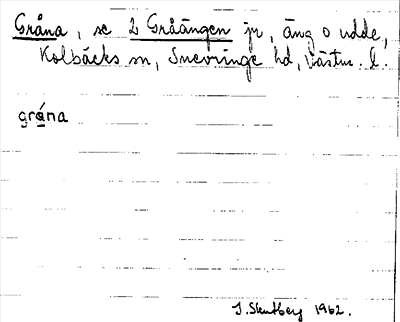 Gråna, se 2 Gråängen jr, äng o udde,
Kolbäcks sn, Snevringe hd, Västm. l.
grána
1962.